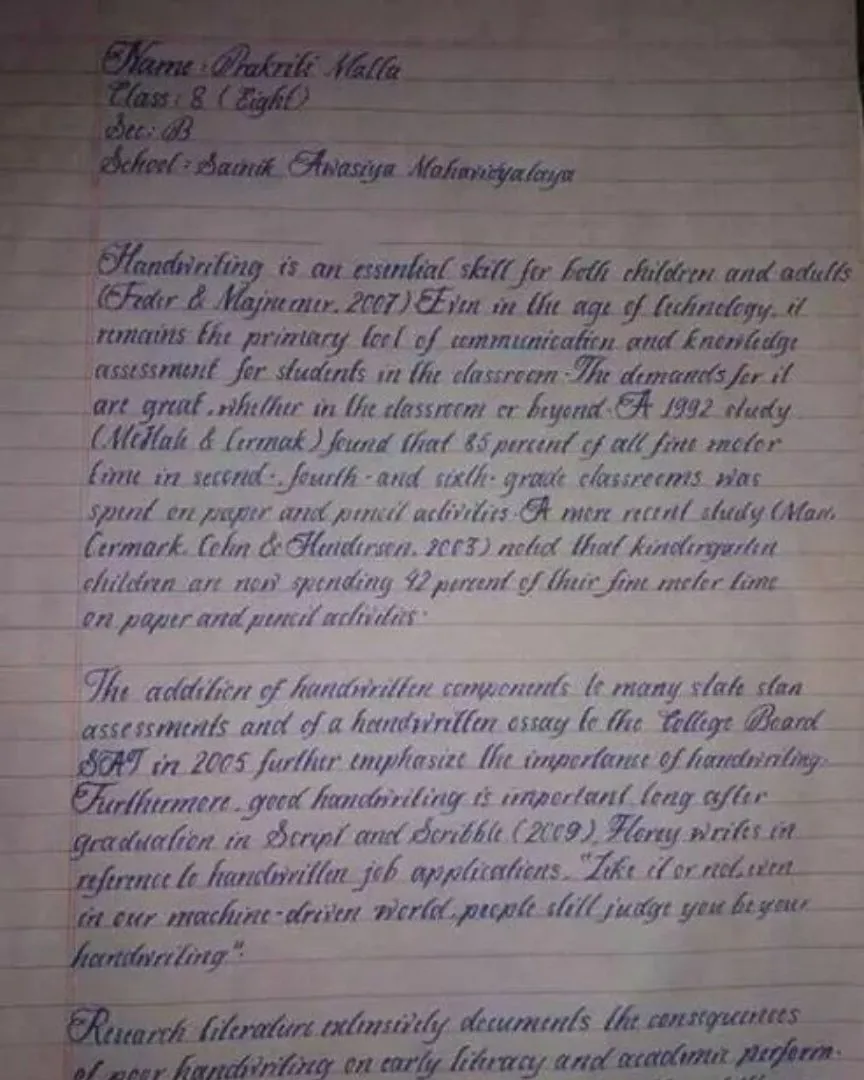 Name : Prakriti Malla
Class : 8 ( Eight )
Sec : B
School : Sainik Awasiya Mahavidyalaya
Handwriting is an essential skill for both children and adults
(Feder & Majnemer, 2007) Even in the age of technology, it
remains the primary tool of communication and knowledge
assessment for students in the classroom. The demands for it
are great, whether in the classroom or beyond. A 1992 study
(McHale & Cermak) found that 85 percent of all fine motor
time in second-, fourth-and sixth-grade classrooms was
spent on paper and pencil activities. A more recent study (Marr,
Cermark, Cohn & Henderson, 2003) noted that kindergarten
children are now spending 42 percent of their fine motor time
on paper and pencil activities.
The addition of handwritten components to many state stan
assessments and of a handwritten essay to the College Board
SAT in 2005 further emphasize the importance of handwriting.
Furthermore, good handwriting is important long after
graduation in Script and Scribble (2009), Florey writes in
reference to handwritten job applications, "Like it or not, even
in our machine-driven world, people still judge you be your
handwriting".
Research literature extensively documents the consequences
of poor handwriting on early literacy and academic perform-